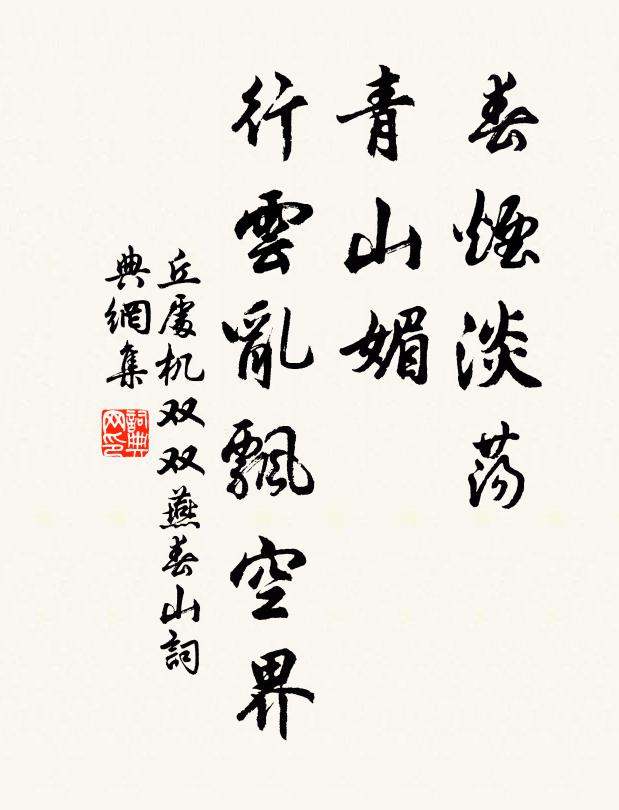 春煙淡荡
青山媚
行雲亂飄空界
丘處机双双燕春山詞
典網集
詞典网印